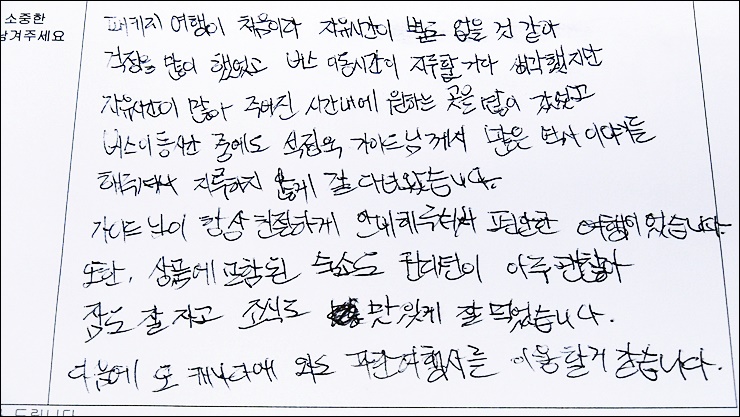 소중한
남겨주세요
패키지 여행이 처음이라 자유시간이 별로 없을 것 같아
걱정을 많이 했었고 버스 이동시간이 지루할거라 생각했지만
자유시간이 많아 주어진 시간내에 원하는 곳은 많이 갔었고
버스이동시간 중에도 가이드님께서 많은 역사 이야기들
해주셔서 지루하지 않게 잘 다녀왔습니다.
가이드님이 항상 친절하게 안내해주셔서 편안한 여행이었습니다
또한, 상품에 포함된 숙소도 컨디션이 아주 괜찮아
잠도 잘 자고 조식도 맛있게 잘 먹었습니다.
다음에 또 캐나다에 와도 파란여행사를 이용할거 같습니다.
드립니다